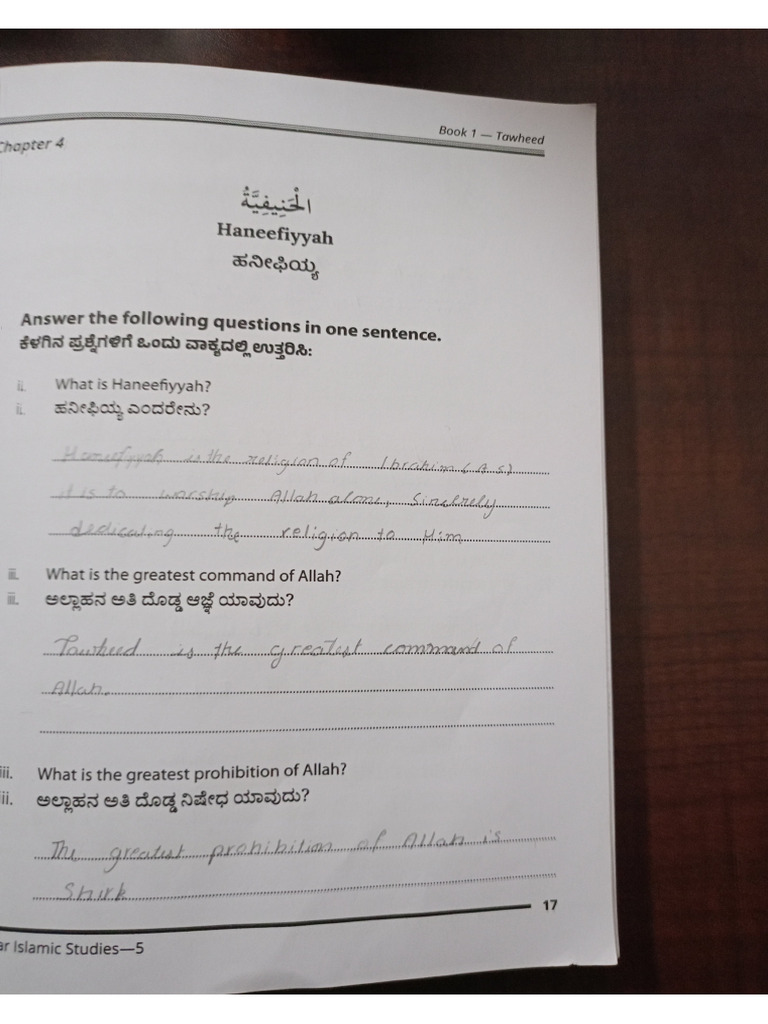 Chapter 4
Book 1 — Tawheed
الْحَنِيفِيَّةُ
Haneefiyyah
ಹನೀಫಿಯ್ಯ
Answer the following questions in one sentence.
ಕೆಳಗಿನ ಪ್ರಶ್ನೆಗಳಿಗೆ ಒಂದು ವಾಕ್ಯದಲ್ಲಿ ಉತ್ತರಿಸಿ:
What is Haneefiyyah?
ಹನೀಫಿಯ್ಯ ಎಂದರೇನು?
is the religion of Ibrahim (A.S)
it is to worship Allah alone, Sincerely
dedicating the religion to Him
ii. What is the greatest command of Allah?
ii. ಅಲ್ಲಾಹನ ಅತಿ ದೊಡ್ಡ ಆಜ್ಞೆ ಯಾವುದು?
Tawheed is the greatest command of
Allah.
iii. What is the greatest prohibition of Allah?
iii. ಅಲ್ಲಾಹನ ಅತಿ ದೊಡ್ಡ ನಿಷೇಧ ಯಾವುದು?
The greatest prohibition of Allah is
Shirk
17
Islamic Studies—5